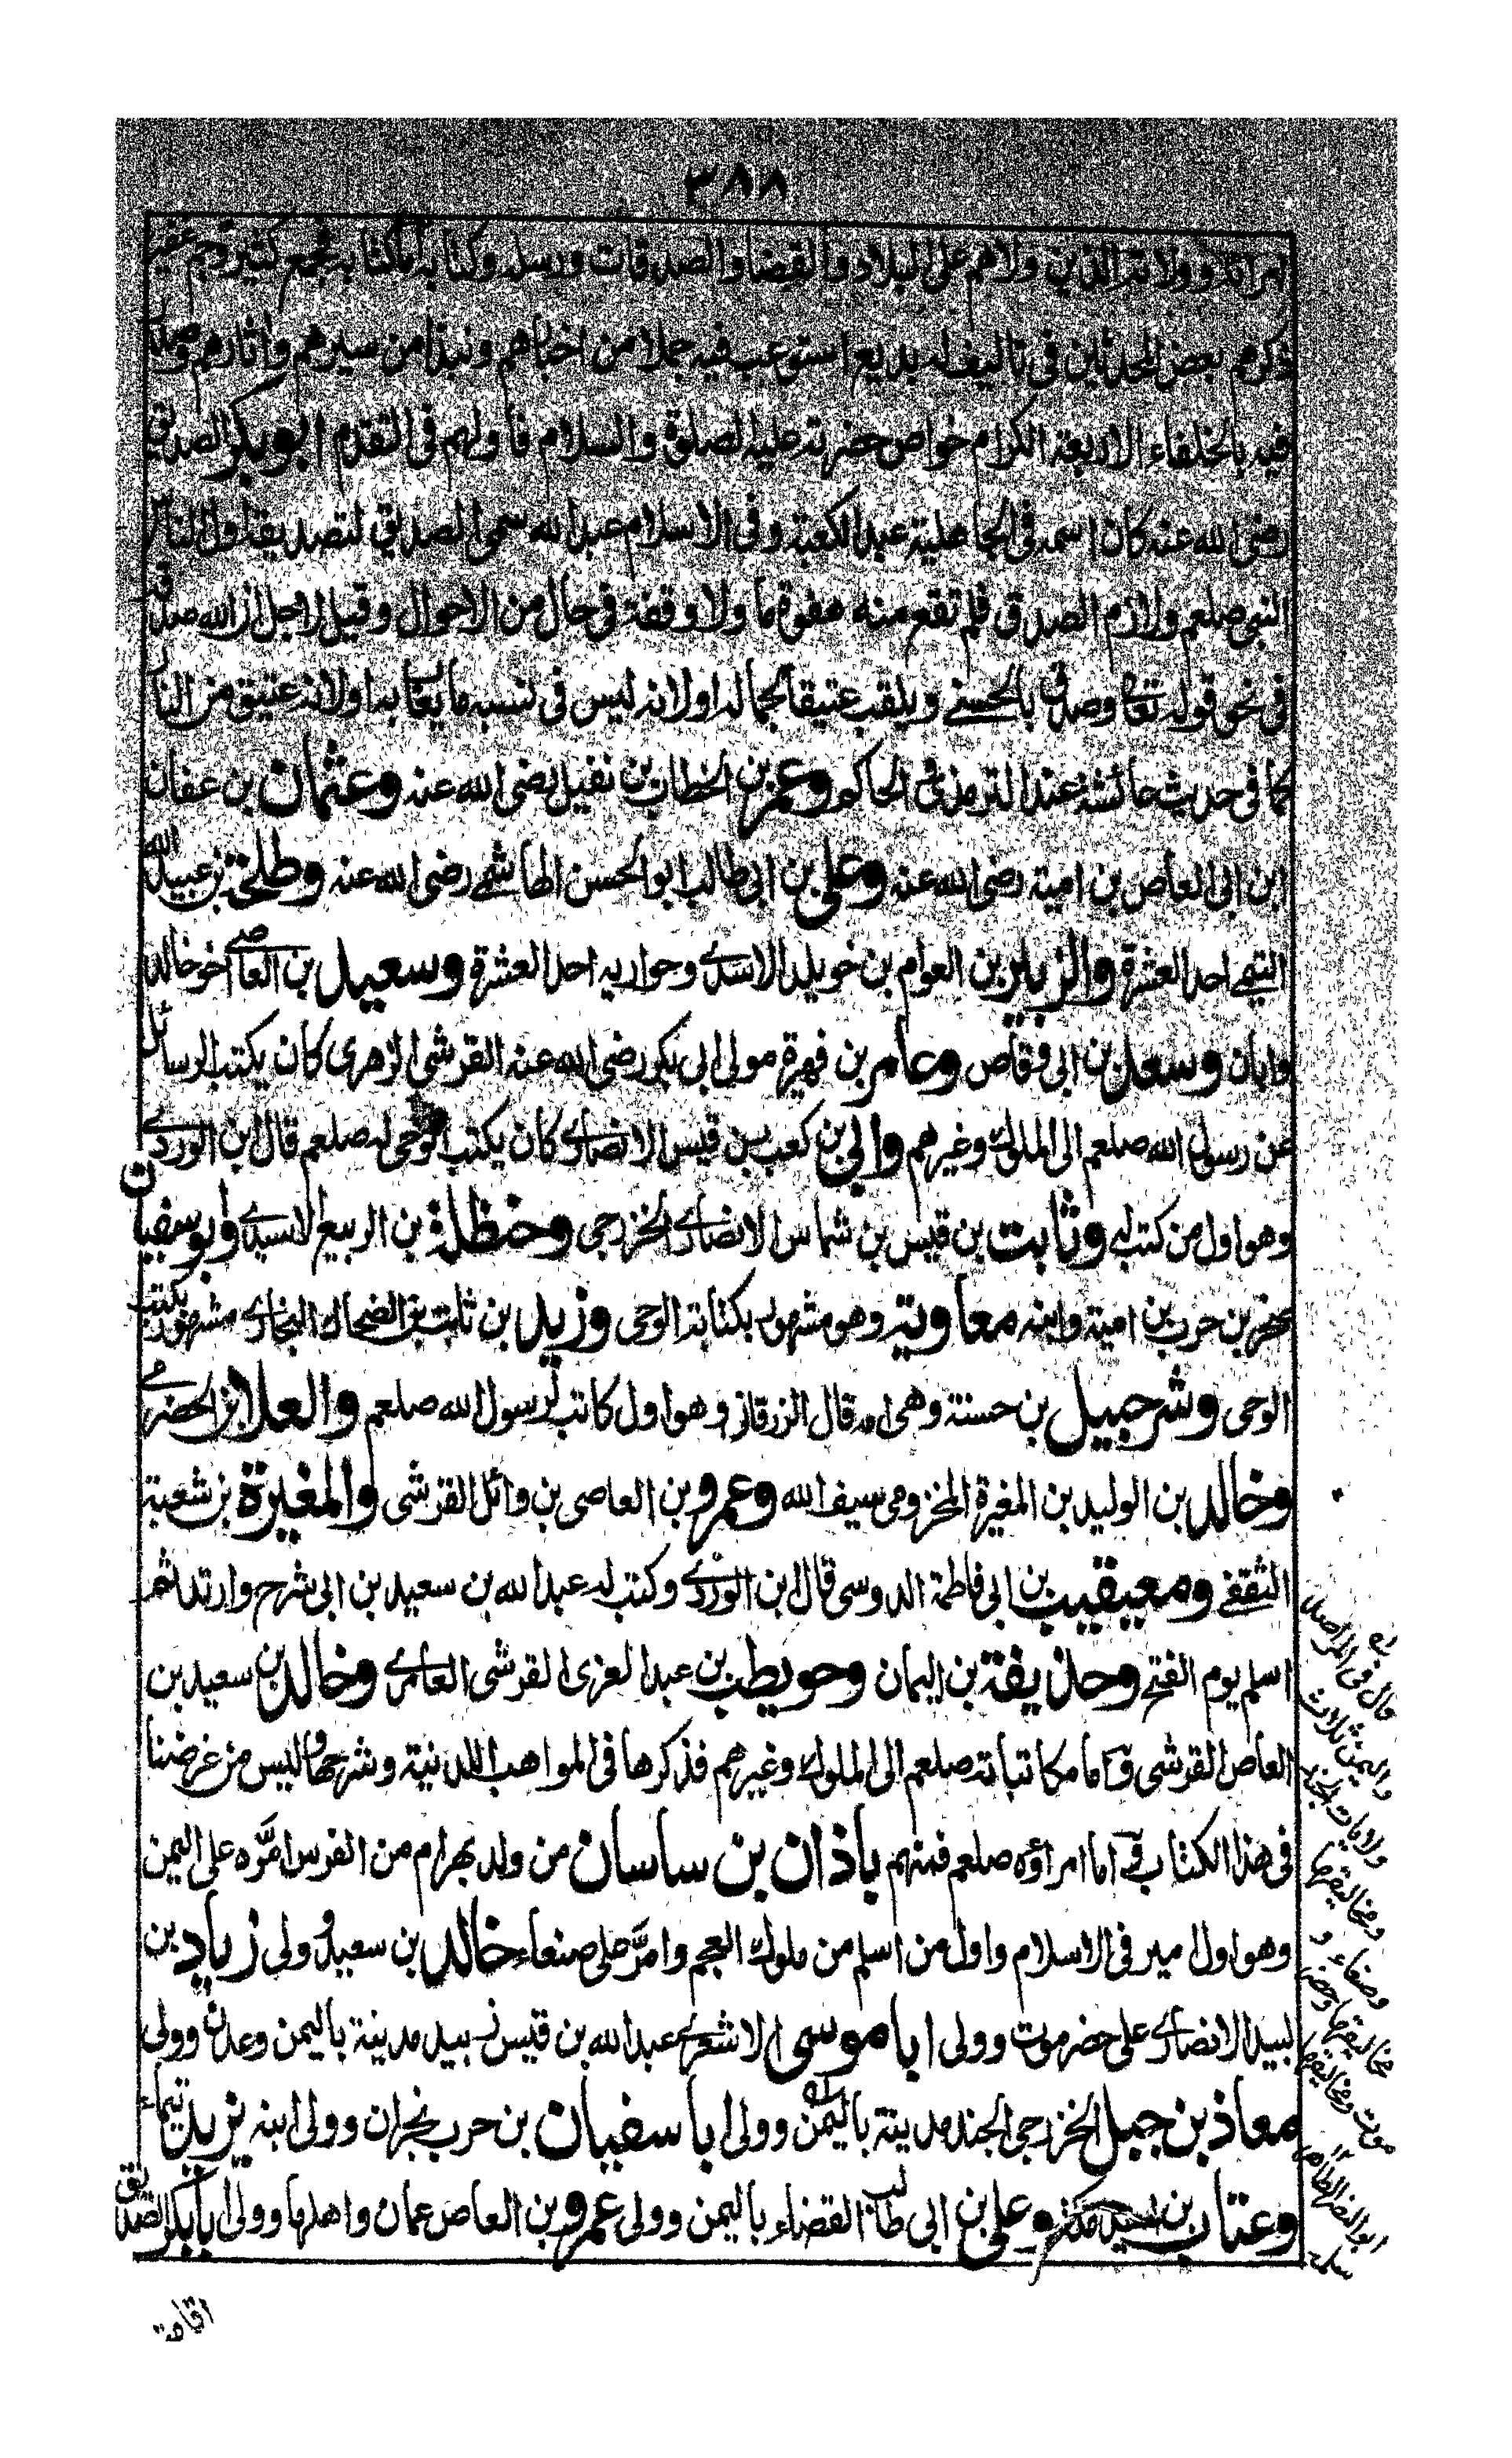 ٣٨٨
امرائه وولاته الذين ولاهم على البلاد والقضا والصدقات ورسله وكتابه اما كتابه فجمع كثير وجم غفير
ذكرهم بعض المحدثين في تاليف له بديع استوعب فيه جملا من اخبارهم ونبذا من سيرهم واثارهم وصدر
فيه بالخلفاء الاربعة الكرام خواص حضرته عليه الصلوة والسلام فاولهم في التقدم ابو بكر الصديق
رضى الله عنه كان اسمه في الجاهلية عبد الكعبة وفى الاسلام عبد الله سمى الصديق لتصديقه اول الناس
النبى صلعم ولازم الصدق فلم تقع منه هفوة ما ولا وقفة في حال من الاحوال وقيل لاجل ان الله صدقه
في نحو قوله تعا وصدق بالحسنے ويلقب عتيقا لجماله او لانه ليس فى نسبه ما يعاب به او لانه عتيق من النار
كما في حديث عائشة عند الترمذى الحاكم وعمر بن الخطاب بن نفيل رضى الله عنه وعثمان بن عفان
ابن ابى العاص بن امية رضى الله عنه وعلى بن ابى طالب ابو الحسن الهاشمے رضى الله عنه وطلحة بن عبيد الله
التيمے احد العشرة والزبير بن العوام بن خويلد الاسدے وحواريه احد العشرة وسعيد بن العاصے اخو خالد
وابان وسعد بن ابى وقاص وعامر بن فهيرة مولى ابى بكر رضى الله عنه القرشى الزهرى كان يكتب الرسائل
عن رسول الله صلعم الى الملوك وغيرهم وابى بن كعب بن قيس الانصارے كان يكتب الوحى له صلعم قال ابن الوردے
وهو اول من كتب له وثابت بن قيس بن شماس الانصارے الخزرجى وحنظلة بن الربيع الاسيدے وابو سفيان
صخر بن حرب بن امية وابنه معاوية وهو مشهور بكتابة الوحى وزيد بن ثابت بن الضحاك النجارے مشهور بكتب
الوحى وشرحبيل بن حسنة وهى امه قال الزرقانى وهو اول كاتب لرسول الله صلعم والعلا بن الحضرمے
وخالد بن الوليد بن المغيرة المخزومى سيف الله وعمرو بن العاصى بن وائل القرشى والمغيرة بن شعبة
الثقفے ومعيقيب بن ابى فاطمة الدوسى قال ابن الوردے وكتب له عبد الله بن سعيد بن ابى شرح وارتد ثم
اسلم يوم الفتح وحذيفة بن اليمان وحويطب بن عبد العزى القرشى العامرے وخالد بن سعيد بن
العاص القرشى و اما مكاتباته صلعم الى الملوك وغيرهم فذكرها فى المواهب اللدنية وشرحها وليس من غرضنا
في هذا الكتاب و اما امراؤه صلعم فمنهم باذان بن ساسان من ولد بهرام من الفرس امّره على اليمن
وهو اول امير فى الاسلام واول من اسلم من ملوك العجم وامّر على صنعاء خالد بن سعيد وولى زياد بن
لبيد الانصارے على حضرموت وولى ابا موسى الاشعرے عبد الله بن قيس زبيد مدينة باليمن وعدن وولى
معاذ بن جبل الخزرجى الجند مدينة باليمن وولى ابا سفيان بن حرب نجران وولى ابنه يزيد تيماء
وعتاب بن اسيد مكة وعلى بن ابى طالب القضاء باليمن وولى عمرو بن العاص عمان واهلها وولى ابا بكر الصديق
اقامة
قال فى المراصد
واليمن ثلاث
ولايات الجند
ومخاليفها
وصنعاء و
مخاليفها وحضر
موت ومخاليفها